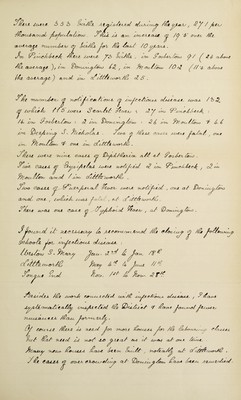 There were 333 births registered during the year, 27.1 per
thousand population. This is an increase of 19.5 over the
average number of births for the last 10 years.
In Pinchbeck there were 75 births, in Gosberton 91 (25 above
the average), in Donington 62, in Moulton 102 (11.4 above
the average) and in Littleworth 25.
The number of notifications of infectious disease was 132
of which 113 were Scarlet Fever: 27 in Pinchbeck.
16 in Gosberton. 2 in Donington. 26 in Moulton & 46
in Deeping S. Nicholas. Two of these were fatal, one
in Moulton & one in Littleworth.
There were nine cases of Diphtheria all at Gosberton.
Five cases of Erysipelas were notified 2 in Pinchbeck, 2 in
Moulton and 1 in Littleworth.
Two cases of Puerperal Fever were notified, one at Donington
and one, which was fatal, at Littleworth.
There was one case of Typhoid Fever, at Donington.
I found it necessary to recommend the closing of the following
Schools for infectious disease:
Weston S. Mary Jan. 2nd to Jan 18th
Littleworth May 4th to June 11th
Tongue End Nov. 1st to Nov. 28th
Besides the work connected with infectious disease, I have
systematically inspected the District & have found fewer
nuisances than formerly.
Of course there is need for more houses for the labouring classes
but that need is not so great as it was at one time.
Many new houses have been built, notably at Littleworth.
The cases of overcrowding at Donington have been remedied.